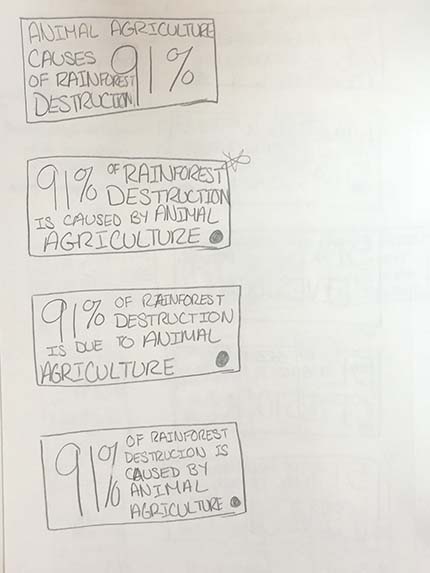 ANIMAL AGRICULTURE
CAUSES 91%
OF RAINFOREST
DESTRUCTION
91% OF RAINFOREST
DESTRUCTION
IS CAUSED BY ANIMAL
AGRICULTURE
91% OF RAINFOREST
DESTRUCTION
IS DUE TO ANIMAL
AGRICULTURE
91% OF RAINFOREST
DESTRUCION IS
CAUSED BY
ANIMAL
AGRICULTURE